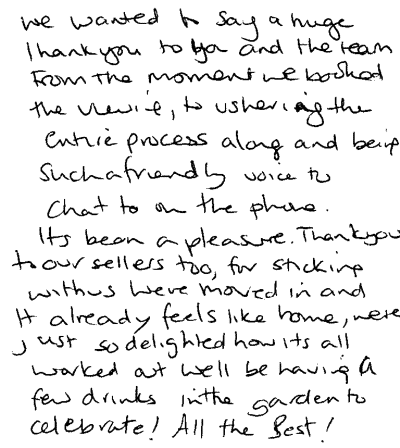 we wanted to say a huge
Thankyou to you and the team
From the moment we booked
the viewing, to ushering the
entire process along and being
such a friendly voice to
chat to on the phone.
Its been a pleasure. Thankyou
to our sellers too, for sticking
with us we're moved in and
It already feels like home, we're
just so delighted how its all
worked out we'll be having a
few drinks in the garden to
celebrate! All the Best!